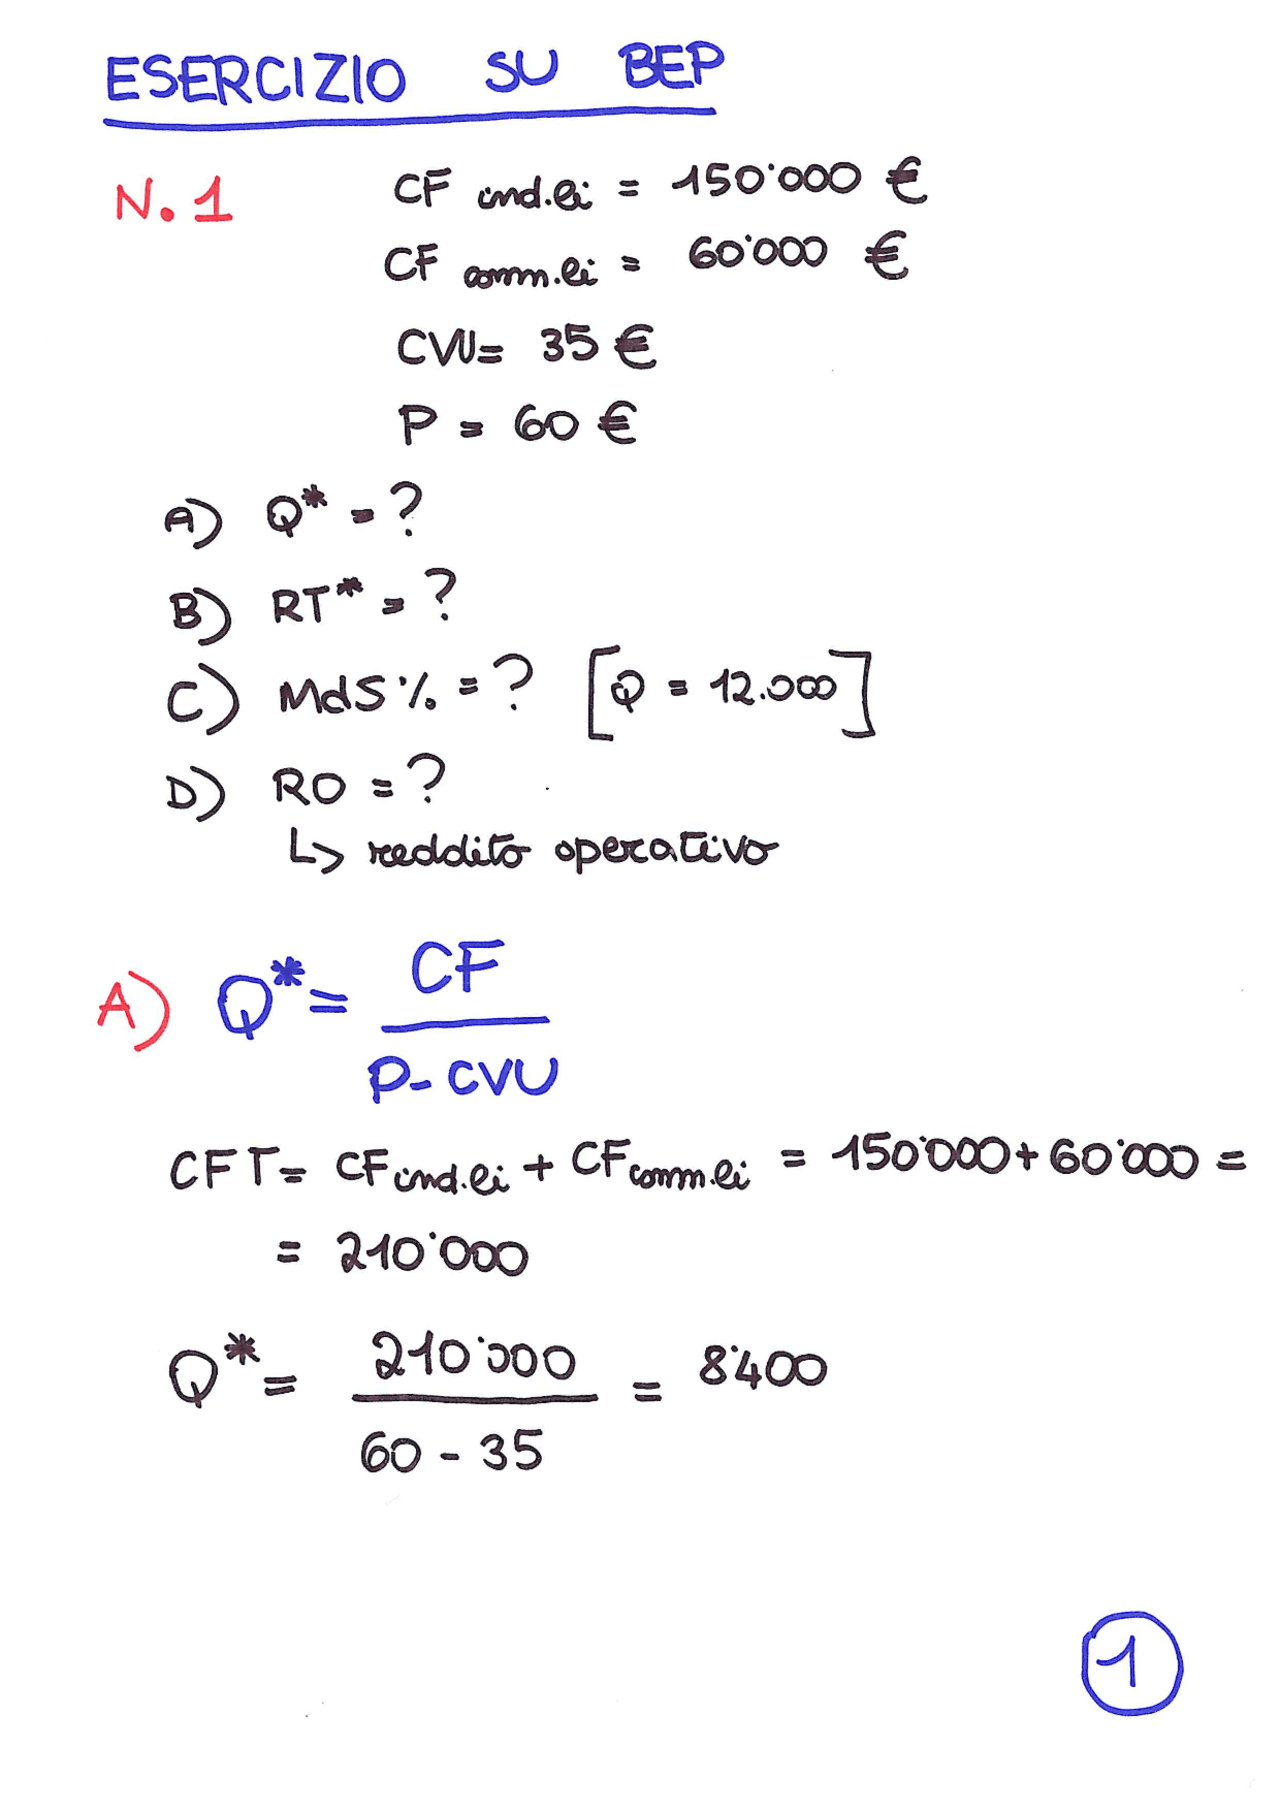 ESERCIZIO SU BEP
N. 1
CF ind.li = 150'000 €
CF comm.li = 60'000 €
CVU = 35 €
P = 60 €
A) Q* = ?
B) RT* = ?
C) MdS % = ? [Q = 12.000]
D) RO = ?
↳ reddito operativo
A) Q* = CF
P - CVU
CFT = CF ind.li + CF comm.li = 150'000 + 60'000 =
= 210'000
Q* = 210'000 = 8'400
60 - 35
1